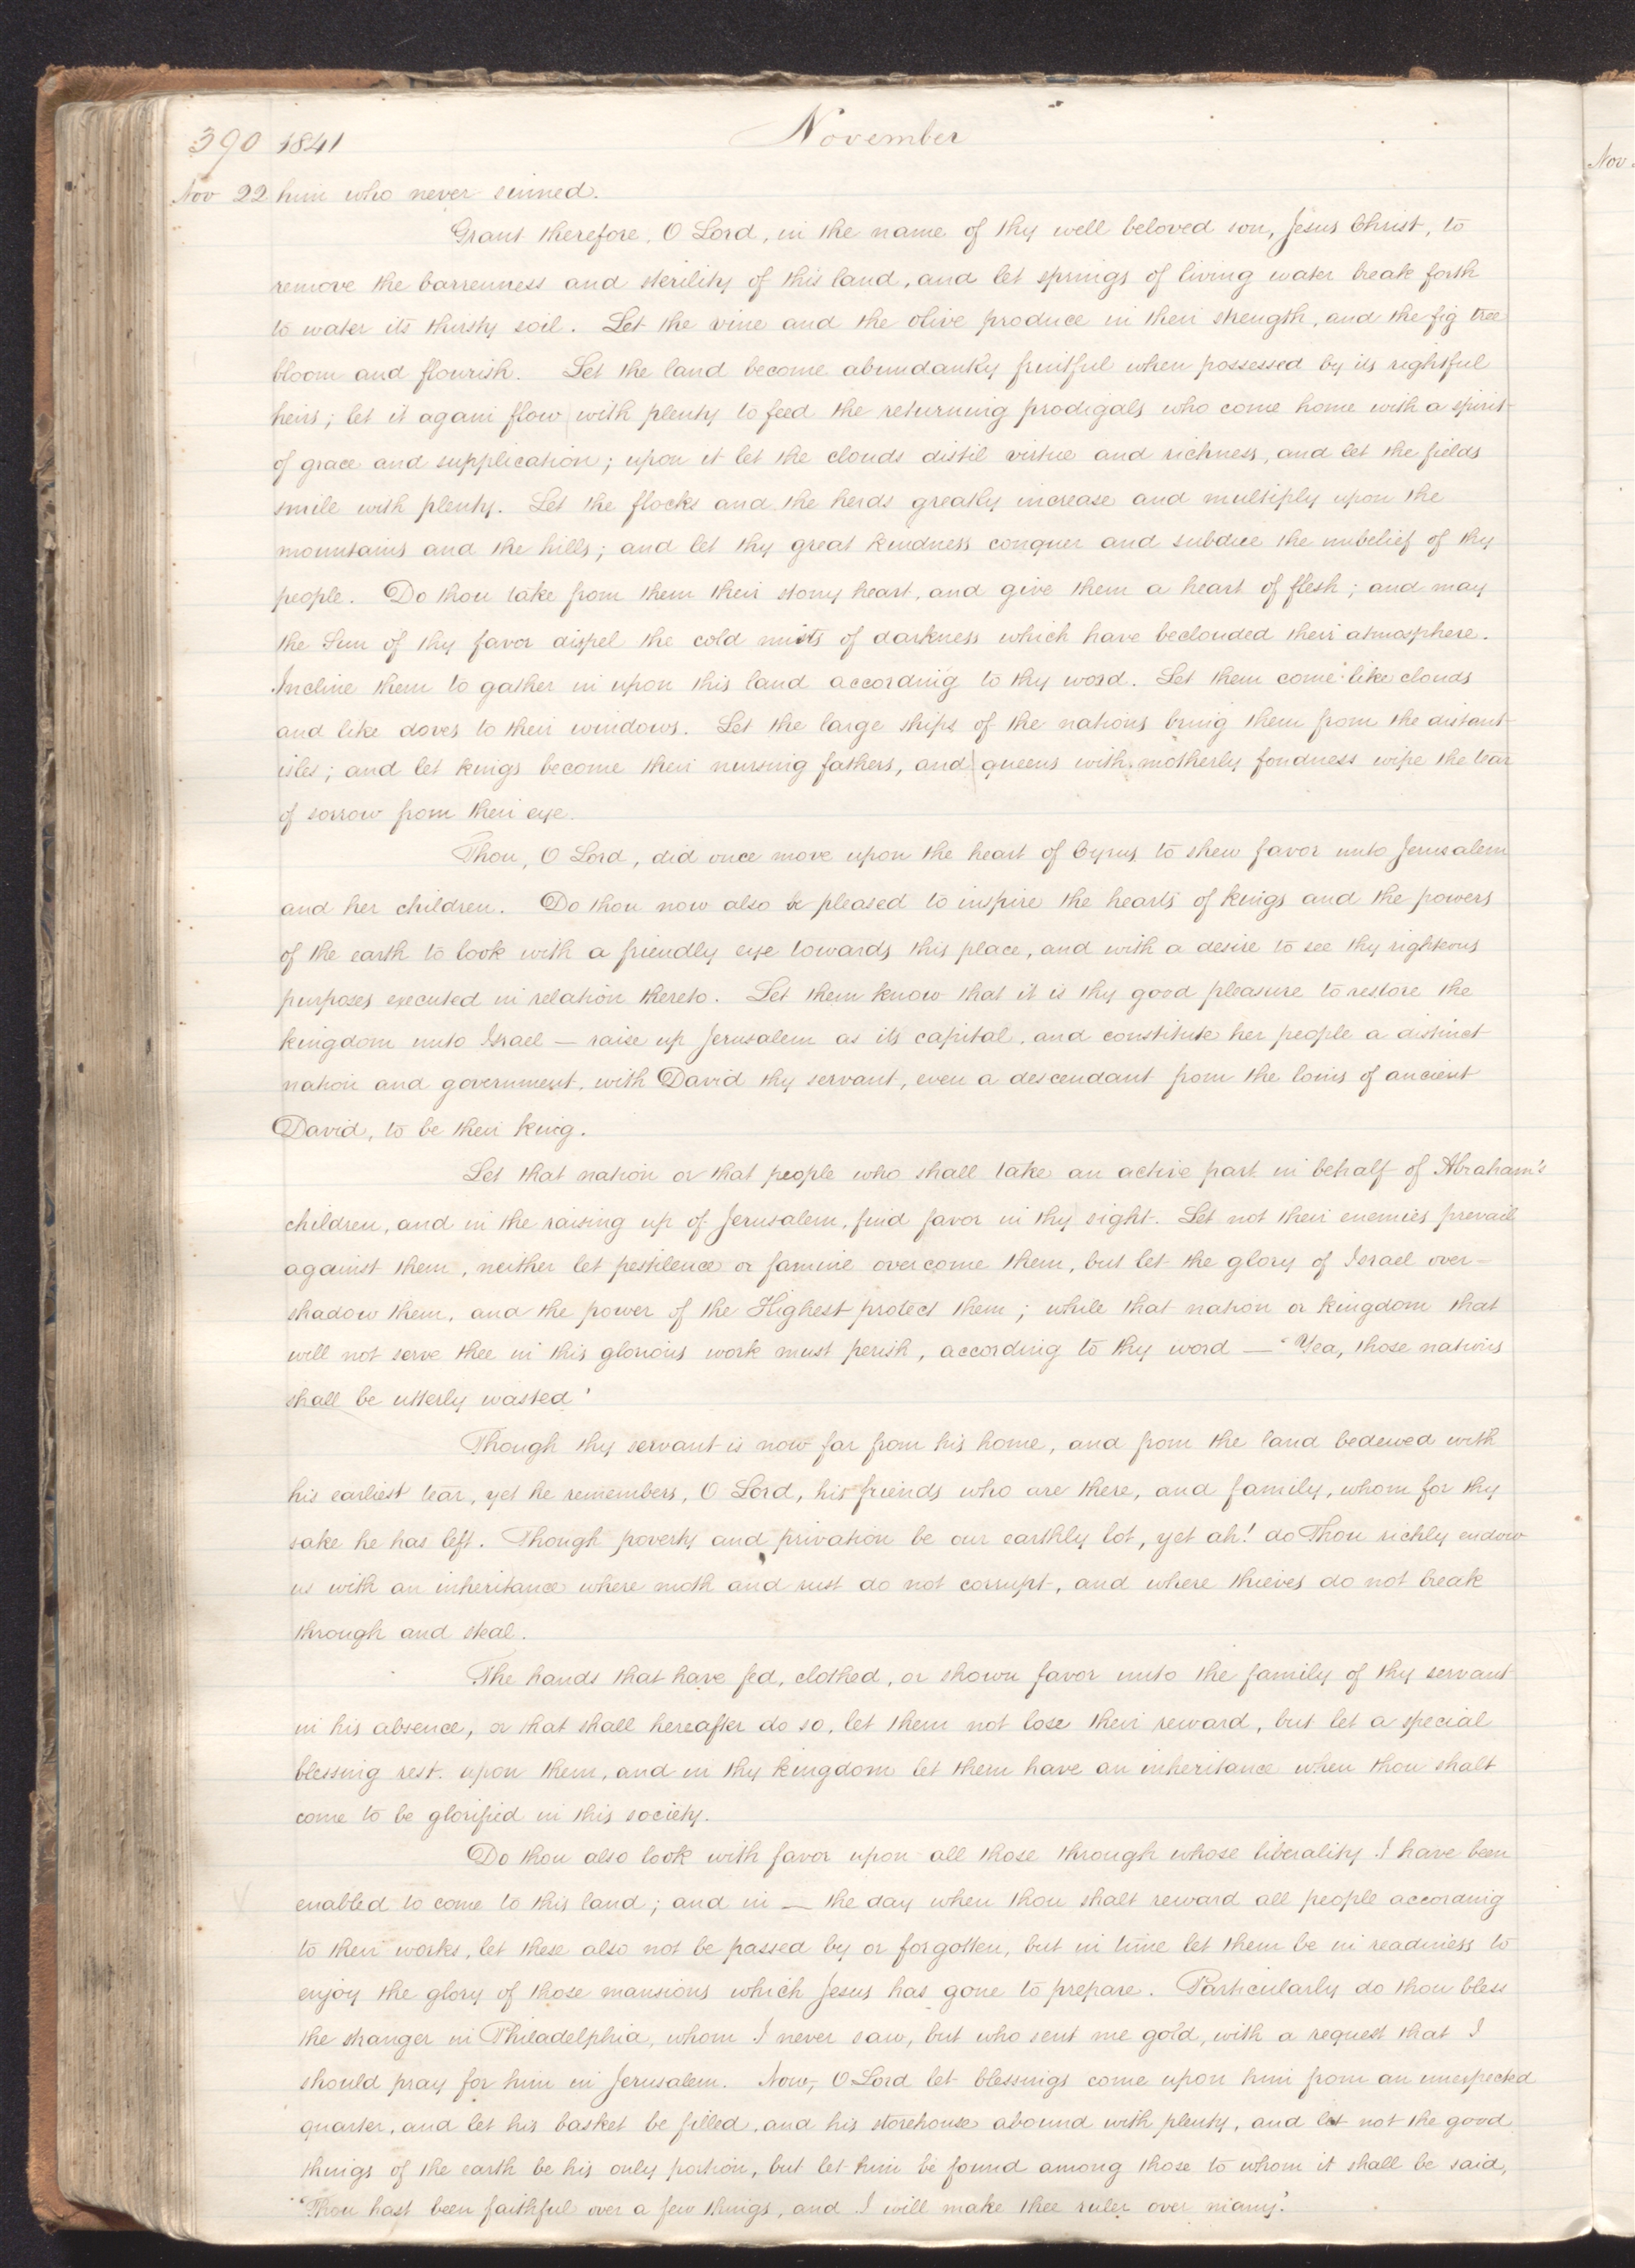 November
390 1841
Nov.
Nov 22 him who never sinned.
Grant therefore, O Lord, in the name of thy well beloved son, Jesus Christ, to
remove the barrenness and sterility of this land, and let springs of living water break forth
to water its thirsty soil. Let the vine and the olive produce in their strength, and the fig tree
bloom and flourish. Let the land become abundantly fruitful when possessed by its rightful
heirs; let it again flow with plenty to feed the returning prodigals who come home with a spirit
of grace and supplication; upon it let the clouds distil virtue and richness, and let the fields
smile with plenty. Let the flocks and the herds greatly increase and multiply upon the
mountains and the hills; and let thy great kindness conquer and subdue the unbelief of thy
people. Do thou take from them their stony heart, and give them a heart of flesh; and may
the Sun of thy favor dispel the cold mists of darkness which have beclouded their atmosphere.
Incline them to gather in upon this land according to thy word. Let them come like clouds
and like doves to their windows. Let the large ships of the nations bring them from the distant
isles; and let kings become their nursing fathers, and queens with motherly fondness wipe the tear
of sorrow from their eye.
Thou, O Lord, did once move upon the heart of Cyrus to shew favor unto Jerusalem
and her children. Do thou now also be pleased to inspire the hearts of kings and the powers
of the earth to look with a friendly eye towards this place, and with a desire to see thy righteous
purposes executed in relation thereto. Let them know that it is thy good pleasure to restore the
kingdom unto Israel — raise up Jerusalem as its capital, and constitute her people a distinct
nation and government, with David thy servant, even a descendant from the loins of ancient
David, to be their king.
Let that nation or that people who shall take an active part in behalf of Abraham's
children, and in the raising up of Jerusalem, find favor in thy sight. Let not their enemies prevail
against them, neither let pestilence or famine overcome them, but let the glory of Israel over-
shadow them, and the power of the Highest protect them; while that nation or kingdom that
will not serve thee in this glorious work must perish, according to thy word — "Yea, those nations
shall be utterly wasted'
Though thy servant is now far from his home, and from the land bedewed with
his earliest tear, yet he remembers, O Lord, his friends who are there, and family, whom for thy
sake he has left. Though poverty and privation be our earthly lot, yet ah! do Thou richly endow
us with an inheritance where moth and rust do not corrupt, and where thieves do not break
through and steal.
The hands that have fed, clothed, or shown favor unto the family of thy servant
in his absence, or that shall hereafter do so, let them not lose their reward, but let a special
blessing rest upon them, and in thy kingdom let them have an inheritance when thou shalt
come to be glorified in this society.
Do thou also look with favor upon all those through whose liberality I have been
enabled to come to this land; and in — the day when thou shalt reward all people according
to their works, let these also not be passed by or forgotten, but in time let them be in readiness to
enjoy the glory of those mansions which Jesus has gone to prepare. Particularly do thou bless
the stranger in Philadelphia, whom I never saw, but who sent me gold, with a request that I
should pray for him in Jerusalem. Now, O Lord let blessings come upon him from an unexpected
quarter, and let his basket be filled, and his storehouse abound with plenty, and let not the good
things of the earth be his only portion, but let him be found among those to whom it shall be said,
"Thou hast been faithful over a few things, and I will make thee ruler over many."